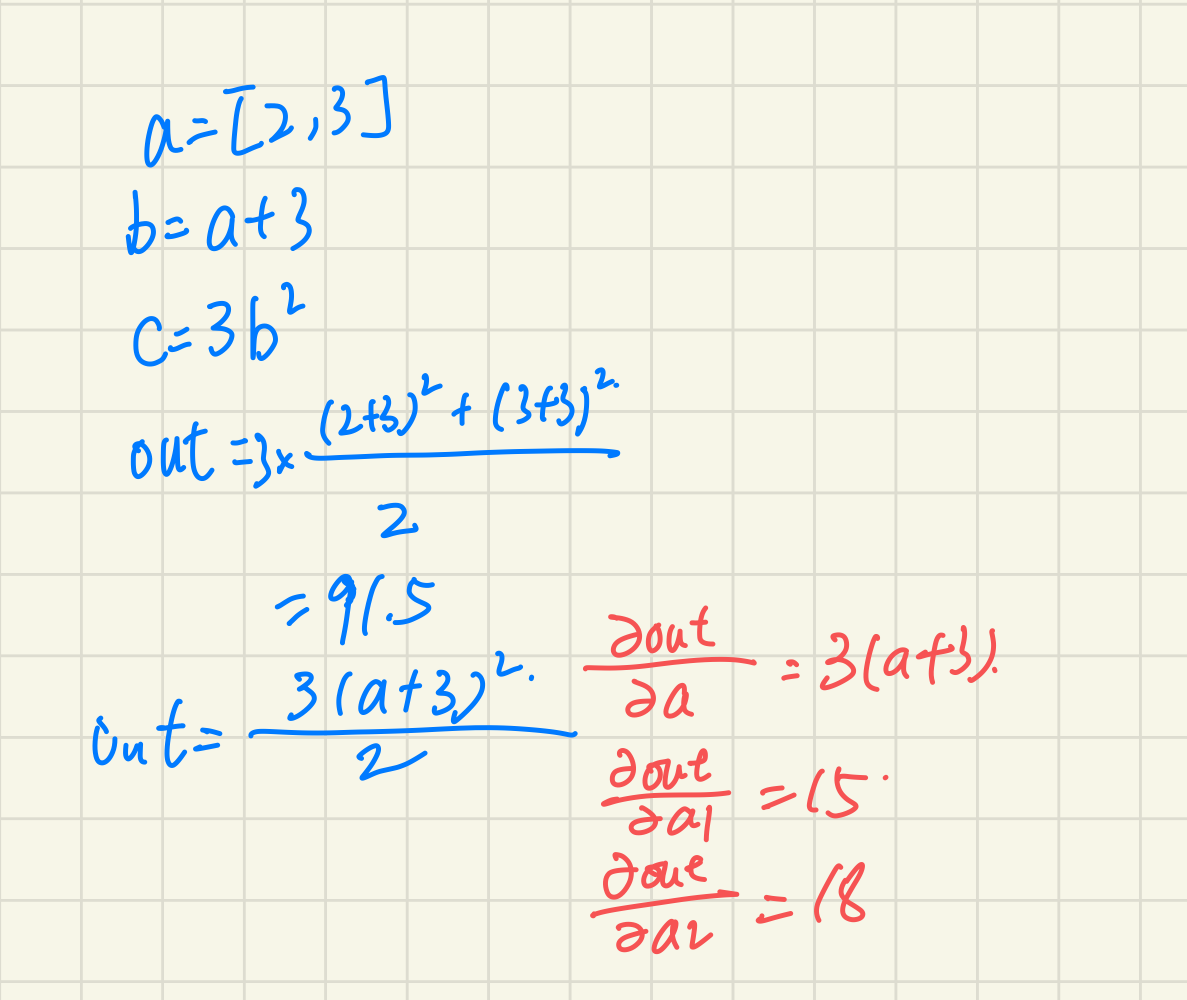 a=[2,3]
b=a+3
c=3b²
out=3×((2+3)²+(3+3)²)/2
=91.5
out=3(a+3)²/2
∂out/∂a=3(a+3).
∂out/∂a1=15
∂out/∂a2=18